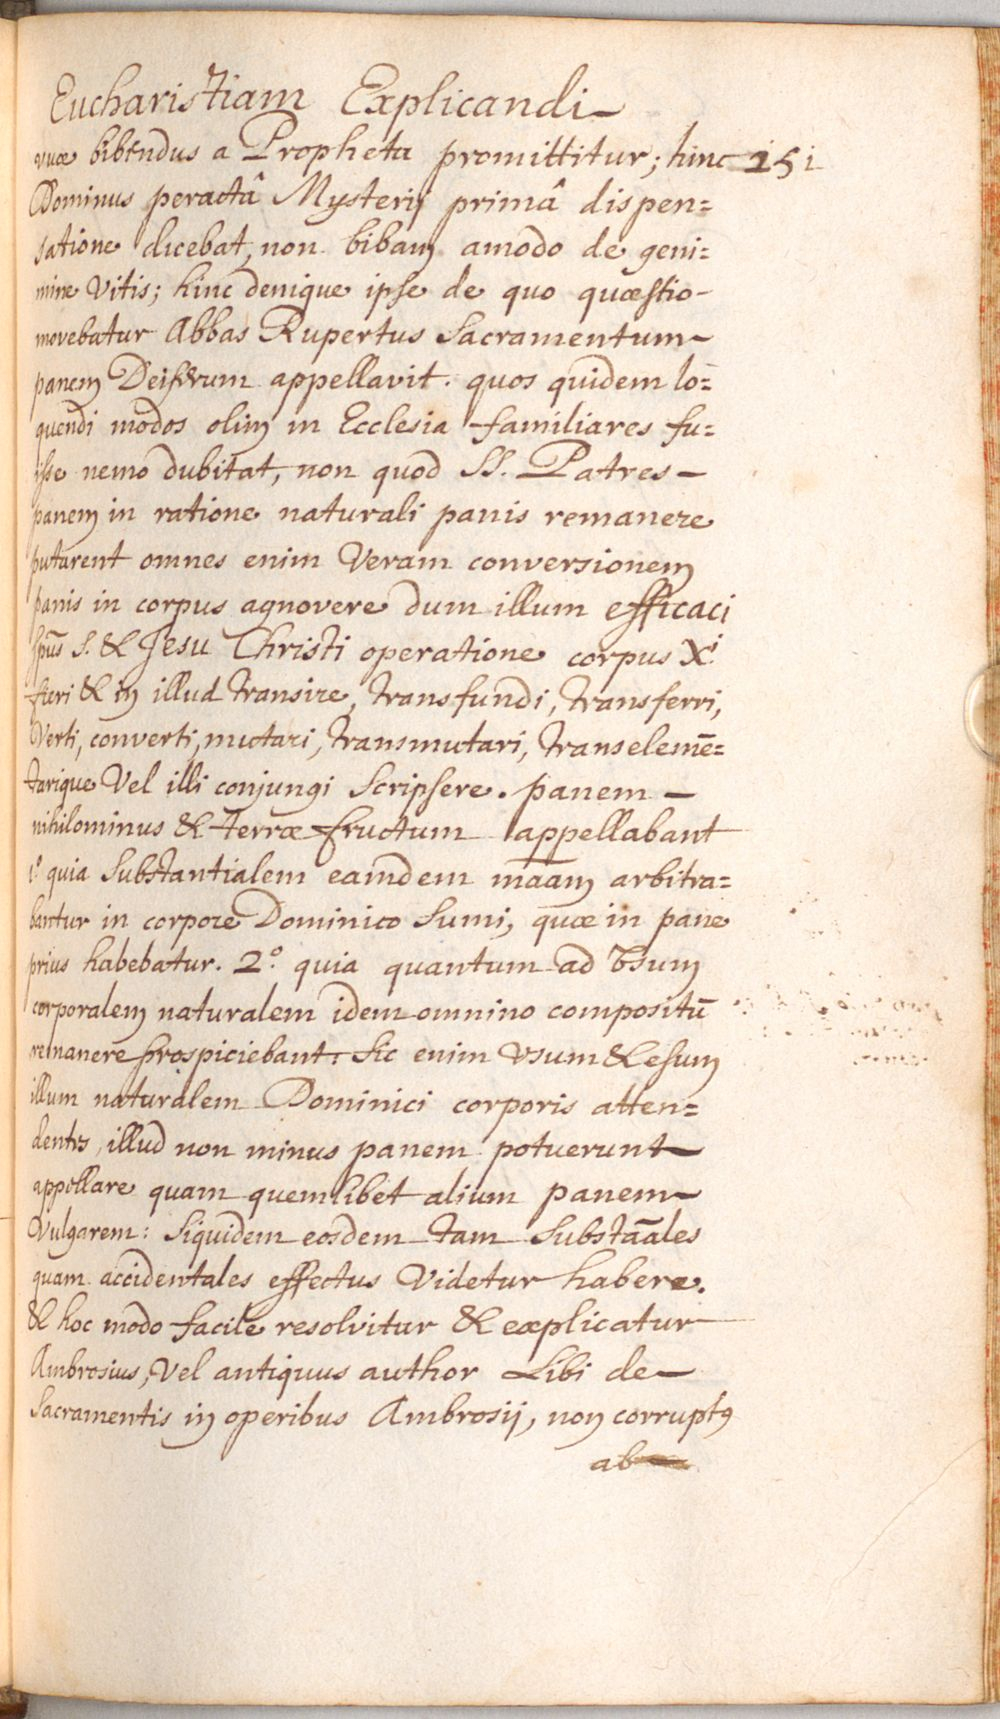 Eucharistiam Explicandi
uvæ bibendus a Propheta promittitur; hinc 151
Dominus peractâ Mysterij primâ dispen=
satione dicebat, non bibam amodo de geni=
mine Vitis; hinc denique ipse de quo quæstio
movebatur Abbas Rupertus Sacramentum
panem Deiferum appellavit. quos quidem lo=
quendi modos olim in Ecclesia familiares fu=
isse nemo dubitat, non quod SS. Patres
panem in ratione naturali panis remanere
putarent omnes enim Veram conversionem
panis in corpus agnovere dum illum efficaci
spũs S. & Jesu Christi operatione corpus Xi
fieri & in illud transire, transfundi, transferri,
Verti, converti, mutari, transmutari, transelemẽ=
tarique Vel illi conjungi Scripsere. panem
nihilominus & terræ fructum appellabant
1.º quia Substantialem eamdem mãam arbitra=
bantur in corpore Dominico Sumi, quæ in pane
prius habebatur. 2.º quia quantum ad Usum
corporalem naturalem idem omnino compositũ
remanere prospiciebant. Sic enim Usum & esum
illum naturalem Dominici corporis atten=
dentes, illud non minus panem potuerunt
appellare quam quemlibet alium panem
Vulgarem: Siquidem eosdem tam Substãales
quam accidentales effectus Videtur habere.
& hoc modo facile resolvitur & explicatur
Ambrosius, Vel antiquus author Libi de
Sacramentis in operibus Ambrosij, non corruptꝰ
ab